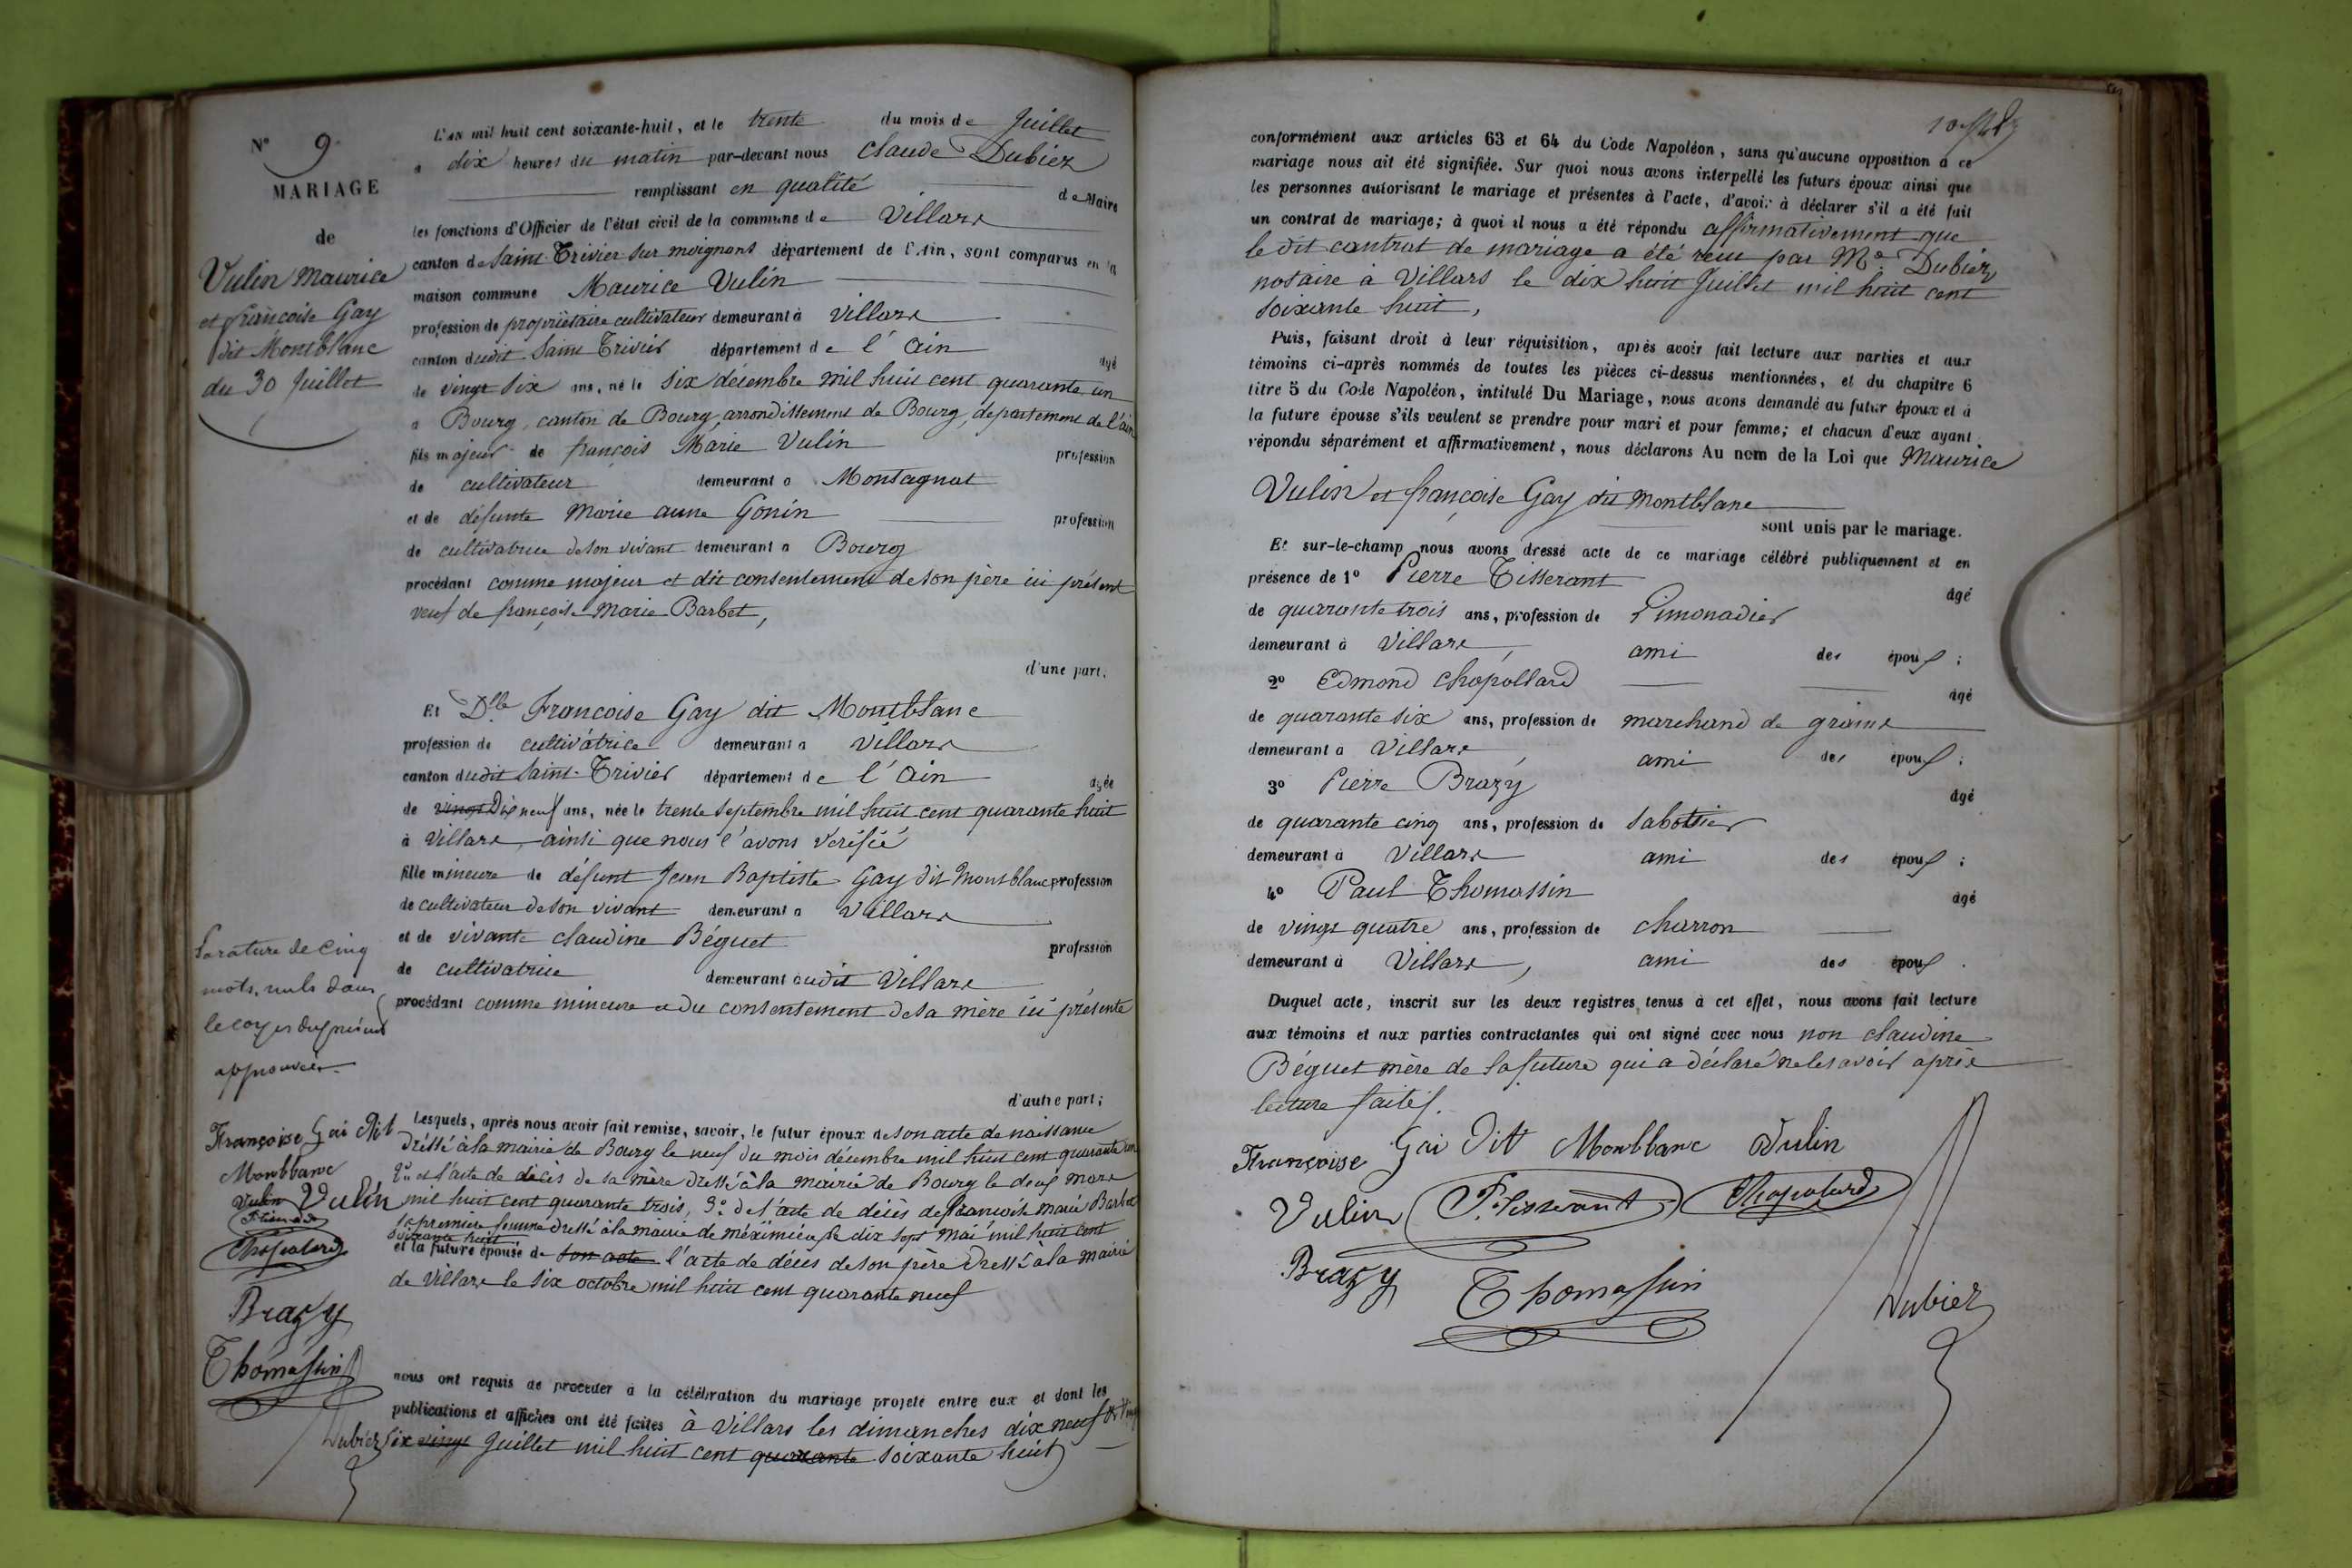 N° 9.
MARIAGE
de
Vulin Maurice
et françoise Gay
dit Montblanc
du 30 Juillet
L'AN mil huit cent soixante-huit, et le trente du mois de Juillet
a dix heures du matin par-devant nous Claude Dubiez
remplissant en qualité de Maire
les fonctions d'Officier de l'état civil de la commune de Villars
canton de Saint Trivier sur moignans département de l'Ain, sont comparus en la
maison commune Maurice Vulin
profession de propriétaire cultivateur demeurant à Villars
canton dudit Saint Trivier département de l'Ain agé
de vingt six ans, né le six décembre mil huit cent quarante un
a Bourg, canton de Bourg, arrondissement de Bourg, département de l'ain
fils majeur de françois Marie Vulin profession
de cultivateur demeurant a Montagnat
et de défunte Marie anne Gonin profession
de cultivatrice de son vivant demeurant a Bourg
procédant comme majeur et dit consentement de son père ici présent
veuf de françoise Marie Barbet,
d'une part.
Et Dlle Françoise Gay dit Montblanc
profession de cultivatrice demeurant a Villars
canton dudit Saint-Trivier département de l'Ain agée
de vingt Dix neuf ans, née le trente septembre mil huit cent quarante huit
à Villars, ainsi que nous l'avons vérifié
fille mineure de défunt Jean Baptiste Gay dit Montblanc profession
de cultivateur de son vivant demeurant a Villars
et de vivante Claudine Béguet profession
de cultivatrice demeurant audit Villars
procédant comme mineure et du consentement de sa mère ici présente
d'autre part;
La rature de cinq
mots, nuls dans
le corps du présent
approuvée.
Françoise Gai Dit
Montblanc
Vulin Vulin
Chopolard
Brazy
Thomassin
Dubiez
Lesquels, après nous avoir fait remise, savoir, le futur époux de son acte de naissance
dressé à la mairie de Bourg le neuf du mois décembre mil huit cent quarante un
2° et l'acte de décès de sa mère dressé à la mairie de Bourg le deux mars
mil huit cent quarante trois, 3° de l'acte de décès de françoise marie Barbet
sa première femme dressé à la mairie de méximieux le dix sept mai mil huit cent
soixante huit
et la future épouse de son acte l'acte de décès de son père dressé à la mairie
de Villars le six octobre mil huit cent quarante neuf
nous ont requis de procéder à la célébration du mariage projeté entre eux et dont les
publications et affiches ont été faites à Villars les dimanches dix neuf et vingt
six vingt Juillet mil huit cent quarante soixante huit
conformément aux articles 63 et 64 du Code Napoléon, sans qu'aucune opposition à ce
mariage nous ait été signifiée. Sur quoi nous avons interpellé les futurs époux ainsi que
les personnes autorisant le mariage et présentes à l'acte, d'avoir à déclarer s'il a été fait
un contrat de mariage; à quoi il nous a été répondu affirmativement que
le dit contrat de mariage a été reçu par Me. Dubiez
notaire à Villars le dix huit Juillet mil huit cent
soixante huit,
Puis, faisant droit à leur réquisition, après avoir fait lecture aux parties et aux
témoins ci-après nommés de toutes les pièces ci-dessus mentionnées, et du chapitre 6
titre 5 du Code Napoléon, intitulé Du Mariage, nous avons demandé au futur époux et à
la future épouse s'ils veulent se prendre pour mari et pour femme; et chacun d'eux ayant
répondu séparément et affirmativement, nous déclarons Au nom de la Loi que Maurice
Vulin et françoise Gay dit Montblanc
sont unis par le mariage.
Et sur-le-champ nous avons dressé acte de ce mariage célébré publiquement et en
présence de 1° Pierre Tisserant agé
de quarante trois ans, profession de Limonadier
demeurant à Villars, ami des époux;
2° Edmond Chopollard agé
de quarante six ans, profession de marchand de grains
demeurant à Villars ami des époux;
3° Pierre Brazy agé
de quarante cinq ans, profession de sabottier
demeurant à Villars ami des époux;
4° Paul Thomassin agé
de vingt quatre ans, profession de charron
demeurant à Villars, ami des époux.
Duquel acte, inscrit sur les deux registres tenus à cet effet, nous avons fait lecture
aux témoins et aux parties contractantes qui ont signé avec nous non Claudine
Béguet mère de la future qui a déclaré ne le savoir après
lecture faites.
Françoise Gai Dit Montblanc Vulin
Vulin P. Tisserant Chopolard
Brazy Thomassin Dubiez